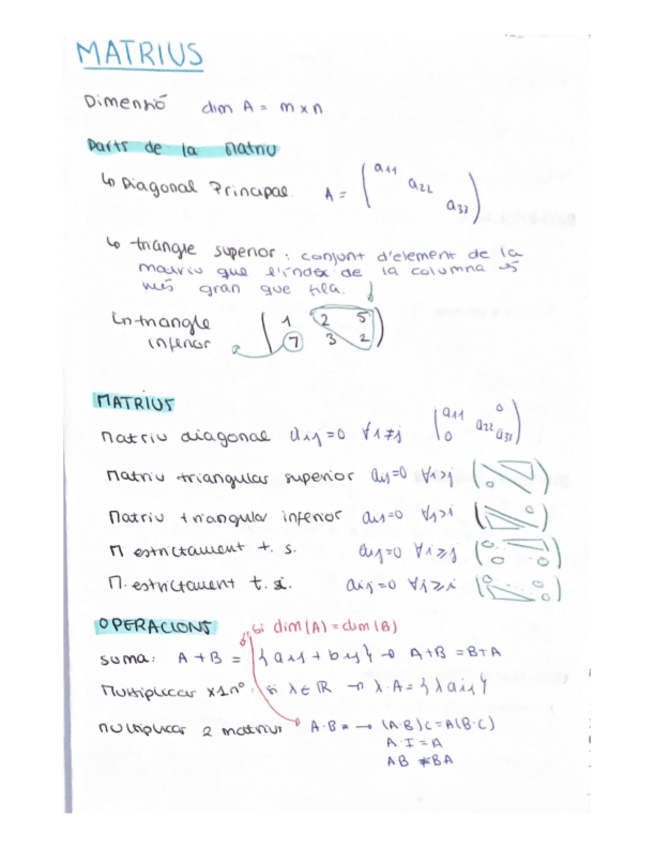 MATRIUS
Dimensió dim A = m x n
Parts de la Matriu
↳ Diagonal Principal. A = ( a11 a22 a33 )
↳ triangle superior : conjunt d'element de la
matriu que l'índex de la columna és
més gran que fila.
↳ triangle ( 1 2 5 )
inferior ( 7 3 2 )
MATRIUS
Matriu diagonal aij=0 ∀i≠j ( a11 0 a22 0 a33 )
Matriu triangular superior aij=0 ∀i>j ( 0 )
Matriu triangular inferior aij=0 ∀j>i ( 0 )
M estrictament t. s. aij=0 ∀i≥j ( 0 0 0 )
M. estrictament t. i. aij=0 ∀j≥i ( 0 0 0 )
OPERACIONS si dim(A) = dim(B)
suma: A + B = { aij + bij } → A+B = B+A
Multiplicar x 1 nº: si λ ∈ ℝ → λ·A = { λ aij }
Multiplicar 2 matrius A·B → (A·B)C = A(B·C)
A·I = A
AB ≠ BA